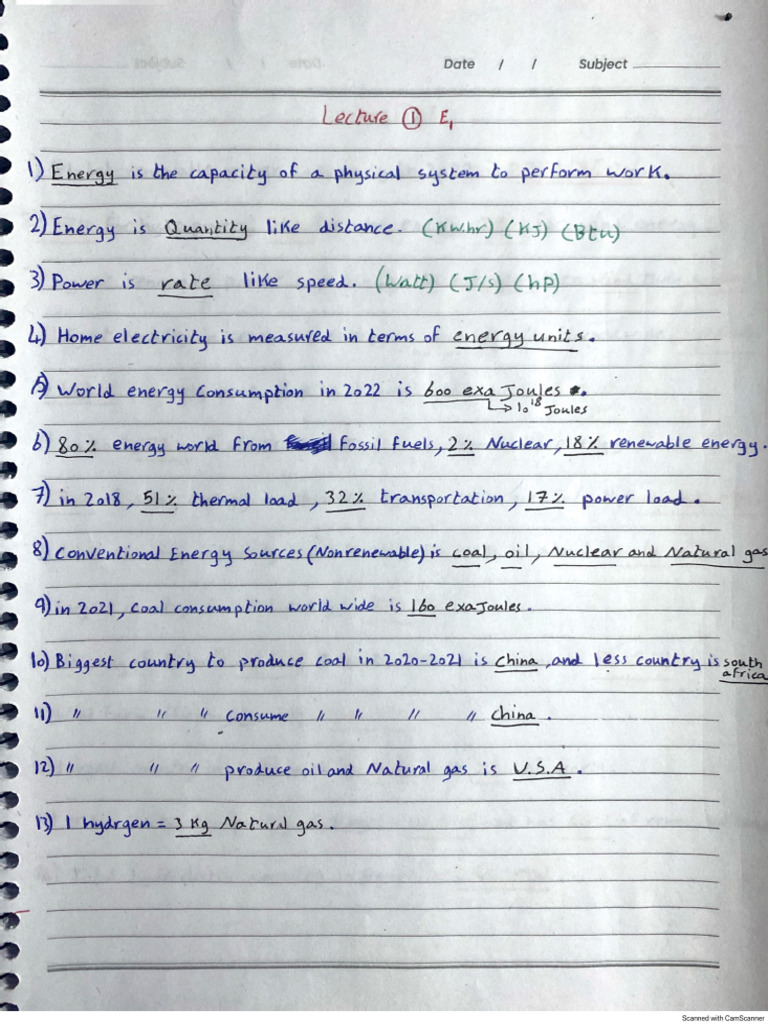 Date / / Subject
Lecture ① E1
1) Energy is the capacity of a physical system to perform work.
2) Energy is Quantity like distance. (Kw.hr) (KJ) (Btu)
3) Power is rate like speed. (Watt) (J/s) (hp)
4) Home electricity is measured in terms of energy units.
5) World energy Consumption in 2022 is 600 exa Joules.
→ 10^18 Joules
6) 80% energy world from fossil fuels, 2% Nuclear, 18% renewable energy.
7) in 2018, 51% thermal load, 32% transportation, 17% power load.
8) Conventional Energy Sources (Nonrenewable) is coal, oil, Nuclear and Natural gas
9) in 2021, Coal consumption world wide is 160 exaJoules.
10) Biggest country to produce coal in 2020-2021 is China, and less country is south africa
11) " " " consume " " " " China.
12) " " " produce oil and Natural gas is U.S.A.
13) 1 hydrgen = 3 Kg Natural gas.
Scanned with CamScanner